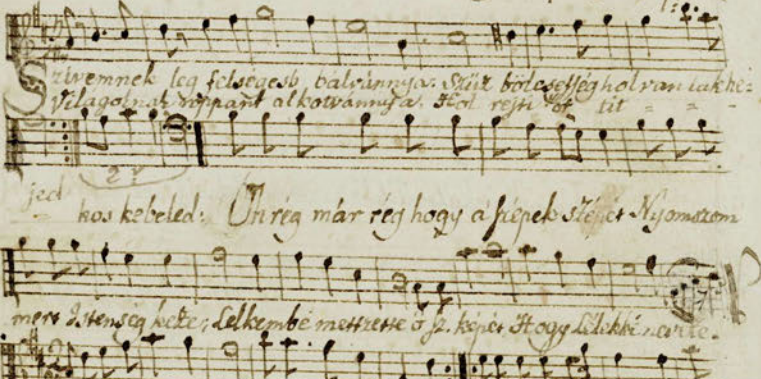 Szivemnek leg felségesb bálvánnya. Szüz bölcsesség hol van lakhe=
Világodnak roppant alkotvánnya. Hol rejti őt tit = = =
jed
kos kebeled: Oh rég már rég hogy a szépek szépét Nyomozom
mert Istenség keze; Lelkembe metzette ő sz. képét Hogy Lélekké